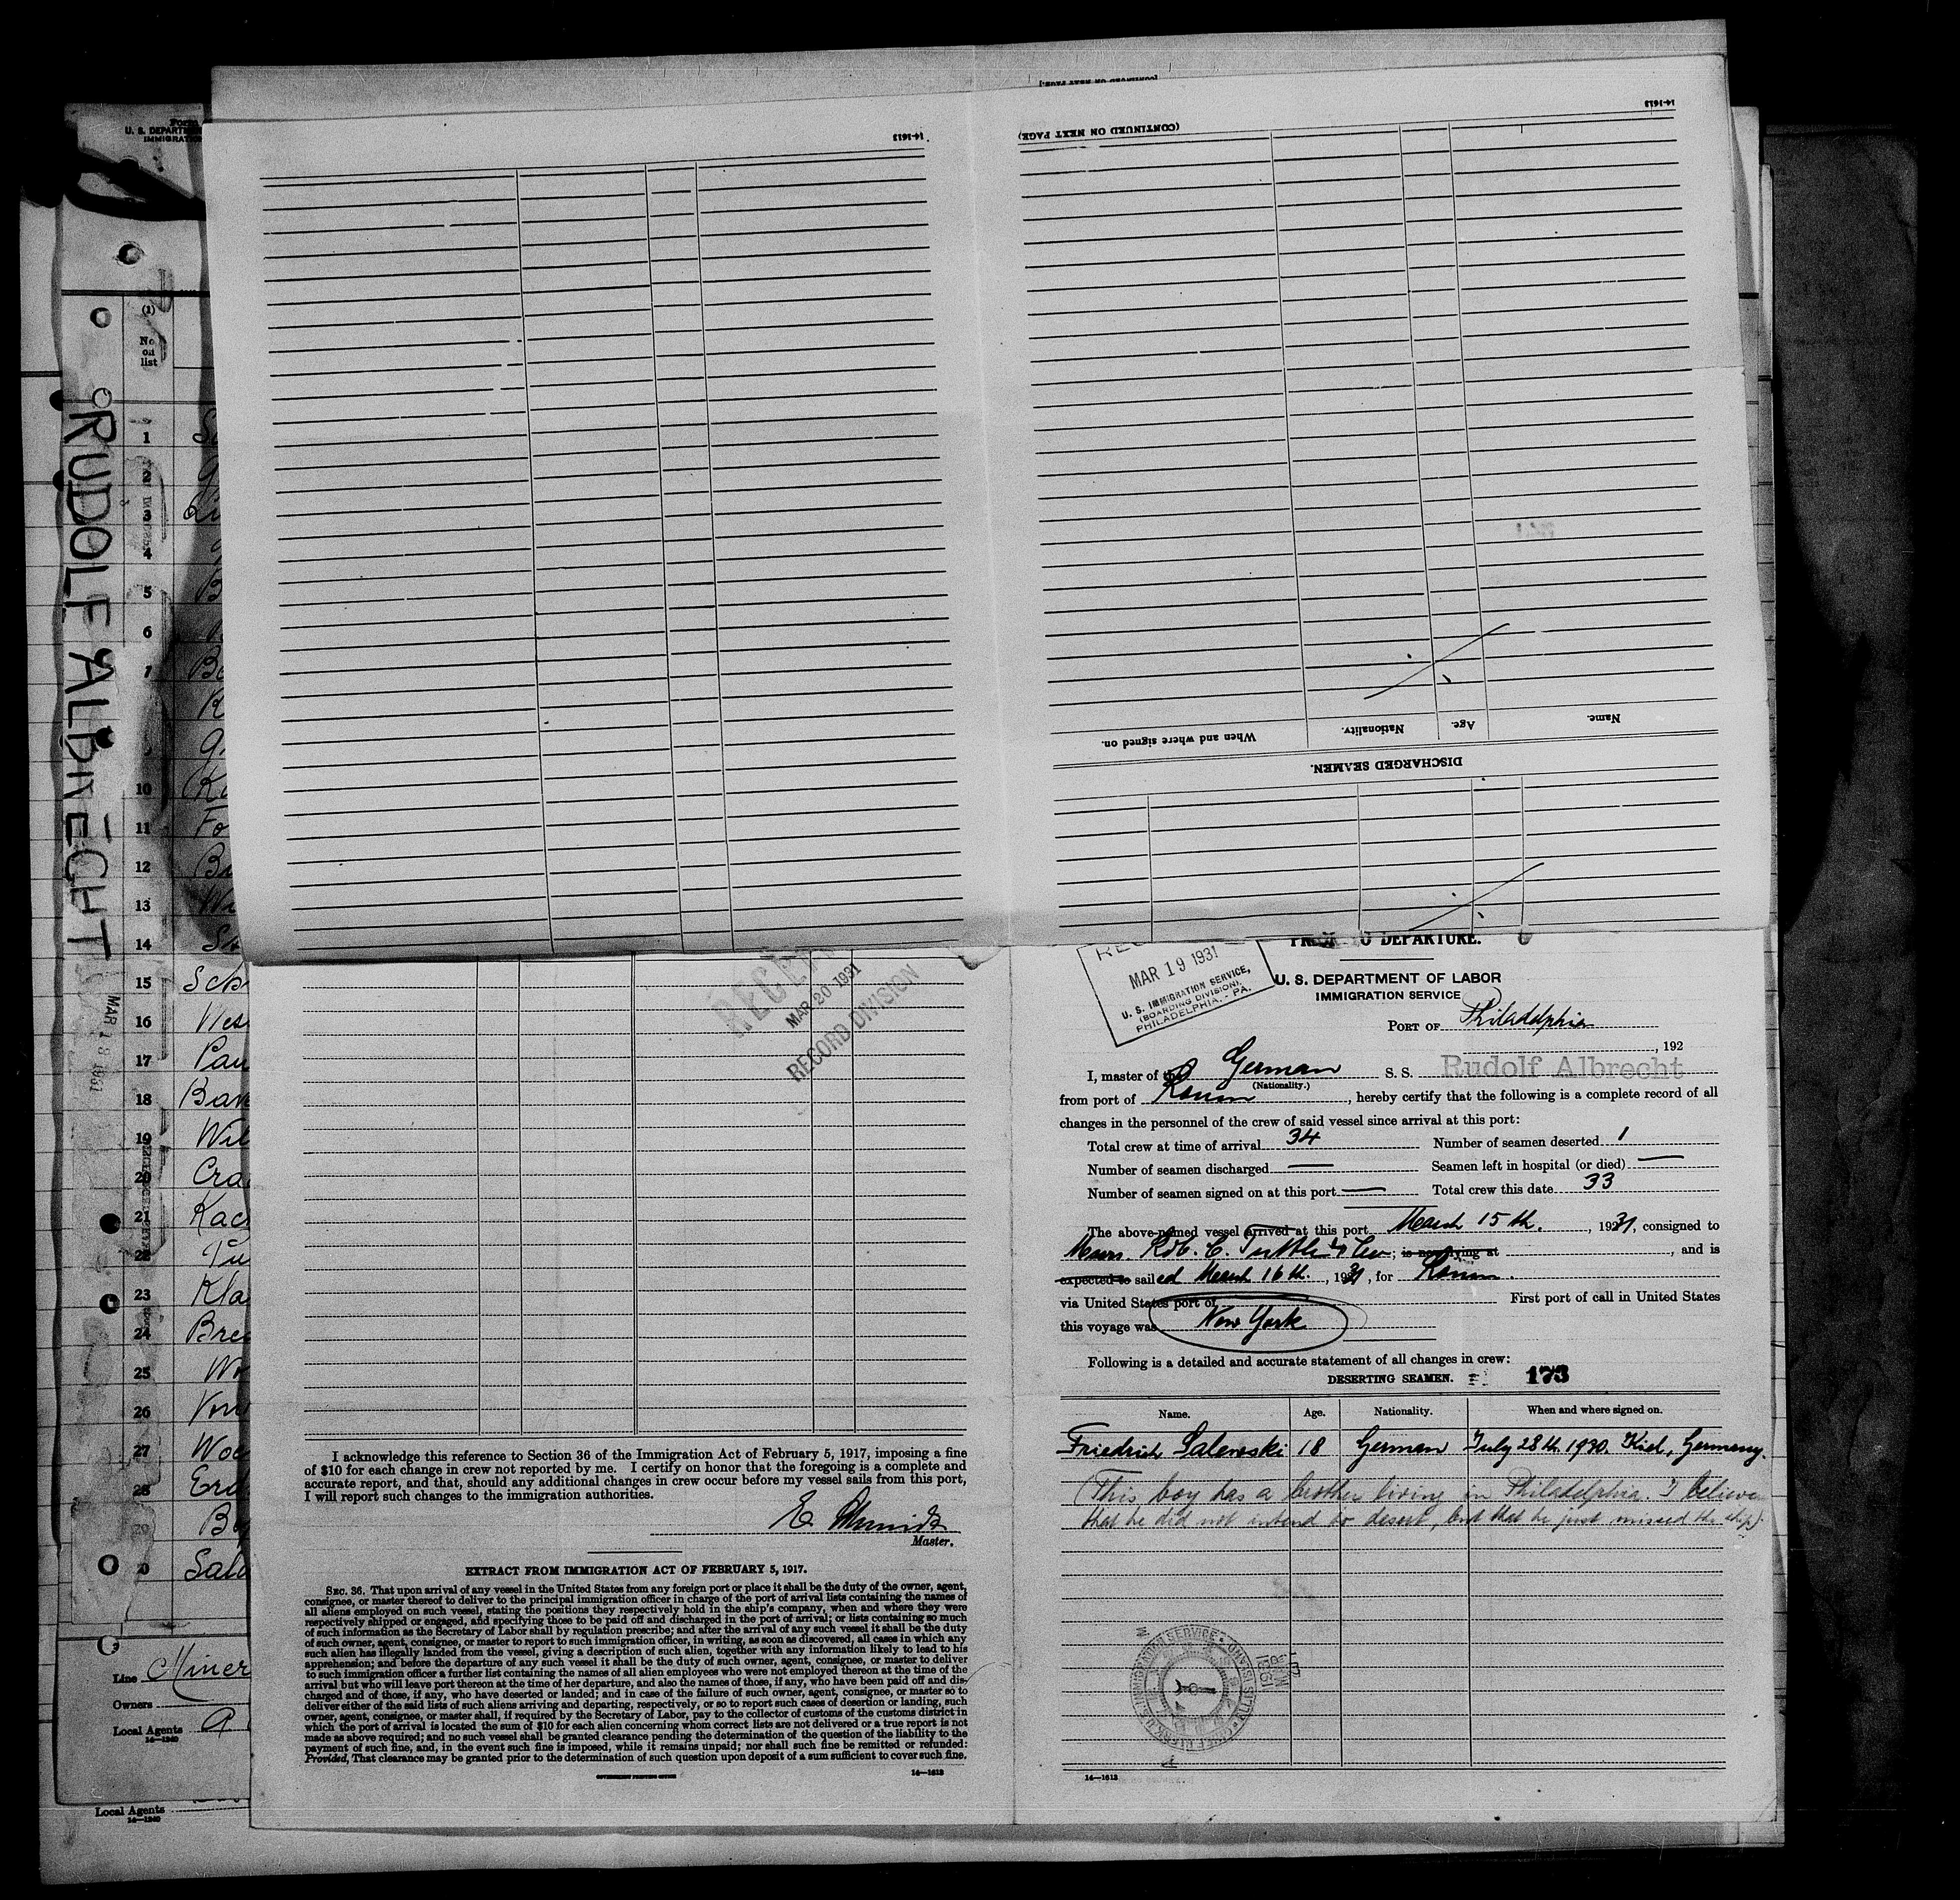 Form
U. S. DEPARTM
IMMIGRATIO
(1)
No
on
list
RUDOLF ALBRECHT
MAR 18 1931
1
2
3
4
5
6
7
10 Ko
11 Fo
12 Bu
13 Wi
14
15 Sch
16 Wes
17 Pau
18 Ban
19 Wil
20 Cra
21 Kac
22
23 Kla
24 Bre
25 Wo
26
27 Woe
28 Erd
29
30 Sale
Line
Owners
Local Agents
14—1240
Local Agents
14—1240
[CONTINUED ON NEXT PAGE]
14-1613
14-1613
(CONTINUED ON NEXT PAGE)
When and where signed on. Nationality. Age. Name.
DISCHARGED SEAMEN.
MAR 20 1931
RECORD DIVISION
I acknowledge this reference to Section 36 of the Immigration Act of February 5, 1917, imposing a fine
of $10 for each change in crew not reported by me. I certify on honor that the foregoing is a complete and
accurate report, and that, should any additional changes in crew occur before my vessel sails from this port,
I will report such changes to the immigration authorities.
Master.
EXTRACT FROM IMMIGRATION ACT OF FEBRUARY 5, 1917.
SEC. 36. That upon arrival of any vessel in the United States from any foreign port or place it shall be the duty of the owner, agent,
consignee, or master thereof to deliver to the principal immigration officer in charge of the port of arrival lists containing the names of
all aliens employed on such vessel, stating the positions they respectively hold in the ship's company, when and where they were
respectively shipped or engaged, and specifying those to be paid off and discharged in the port of arrival; or lists containing so much
of such information as the Secretary of Labor shall by regulation prescribe; and after the arrival of any such vessel it shall be the duty
of such owner, agent, consignee, or master to report to such immigration officer, in writing, as soon as discovered, all cases in which any
such alien has illegally landed from the vessel, giving a description of such alien, together with any information likely to lead to his
apprehension; and before the departure of any such vessel it shall be the duty of such owner, agent, consignee, or master to deliver
to such immigration officer a further list containing the names of all alien employees who were not employed thereon at the time of the
arrival but who will leave port thereon at the time of her departure, and also the names of those, if any, who have been paid off and dis-
charged and of those, if any, who have deserted or landed; and in case of the failure of such owner, agent, consignee, or master so to
deliver either of the said lists of such aliens arriving and departing, respectively, or so to report such cases of desertion or landing, such
owner, agent, consignee, or master shall, if required by the Secretary of Labor, pay to the collector of customs of the customs district in
which the port of arrival is located the sum of $10 for each alien concerning whom correct lists are not delivered or a true report is not
made as above required; and no such vessel shall be granted clearance pending the determination of the question of the liability to the
payment of such fine, and, in the event such fine is imposed, while it remains unpaid; nor shall such fine be remitted or refunded:
Provided, That clearance may be granted prior to the determination of such question upon deposit of a sum sufficient to cover such fine.
GOVERNMENT PRINTING OFFICE
14—1613
TO DEPARTURE.
MAR 19 1931
U. S. IMMIGRATION SERVICE,
(BOARDING DIVISION),
PHILADELPHIA, - PA.
U. S. DEPARTMENT OF LABOR
IMMIGRATION SERVICE
PORT OF Philadelphia
, 192
I, master of the German S. S. Rudolf Albrecht
(Nationality.)
from port of , hereby certify that the following is a complete record of all
changes in the personnel of the crew of said vessel since arrival at this port:
Total crew at time of arrival 34 Number of seamen deserted 1
Number of seamen discharged — Seamen left in hospital (or died) —
Number of seamen signed on at this port — Total crew this date 33
The above-named vessel arrived at this port March 15th. , 1931, consigned to
Messrs. Rob. C. Tuttle & Co.; is now lying at , and is
expected to sailed March 16th. , 1931, for
via United States port of First port of call in United States
this voyage was New York
Following is a detailed and accurate statement of all changes in crew:
DESERTING SEAMEN. 173
Name. Age. Nationality. When and where signed on.
Friedrich Salewski 18 German July 28th 1930. Kiel, Germany.
(This boy has a brother living in Philadelphia. I believe
that he did not intend to desert, but that he just missed the ship).
14—1613